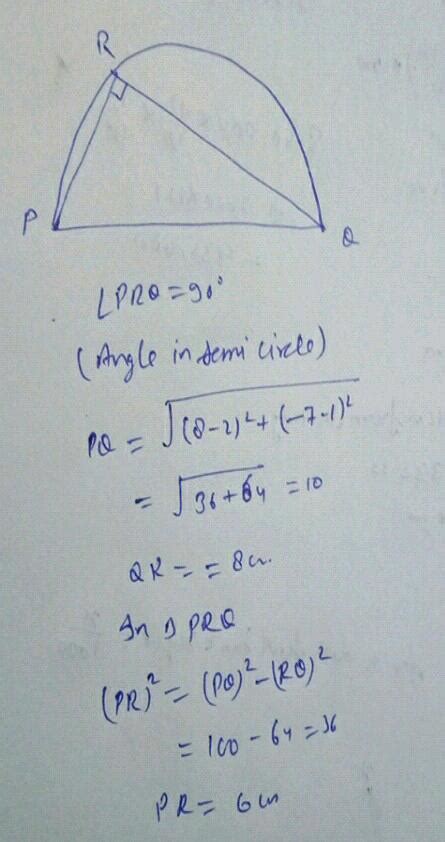 R
P
Q
∠PRQ = 90°
(Angle in semi circle)
PQ = √(8-2)² + (-7-1)²
= √36+64 = 10
QR = = 8cm
In Δ PRQ
(PR)² = (PQ)² - (RQ)²
= 100 - 64 = 36
PR = 6 cm